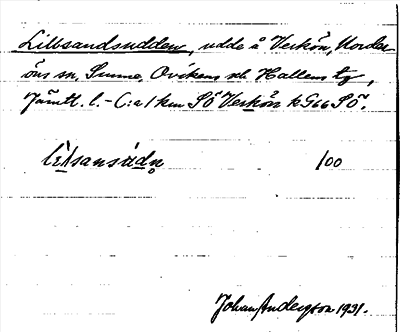 Lillsandsudden, udde å Verkön, Norder
öns sn, Sunne, Ovikens och Hallens tg,
Jämtl. l. – C:a 1 km SÖ Verkön k G66 SÖ.
100
Johan Anderzon 1931.